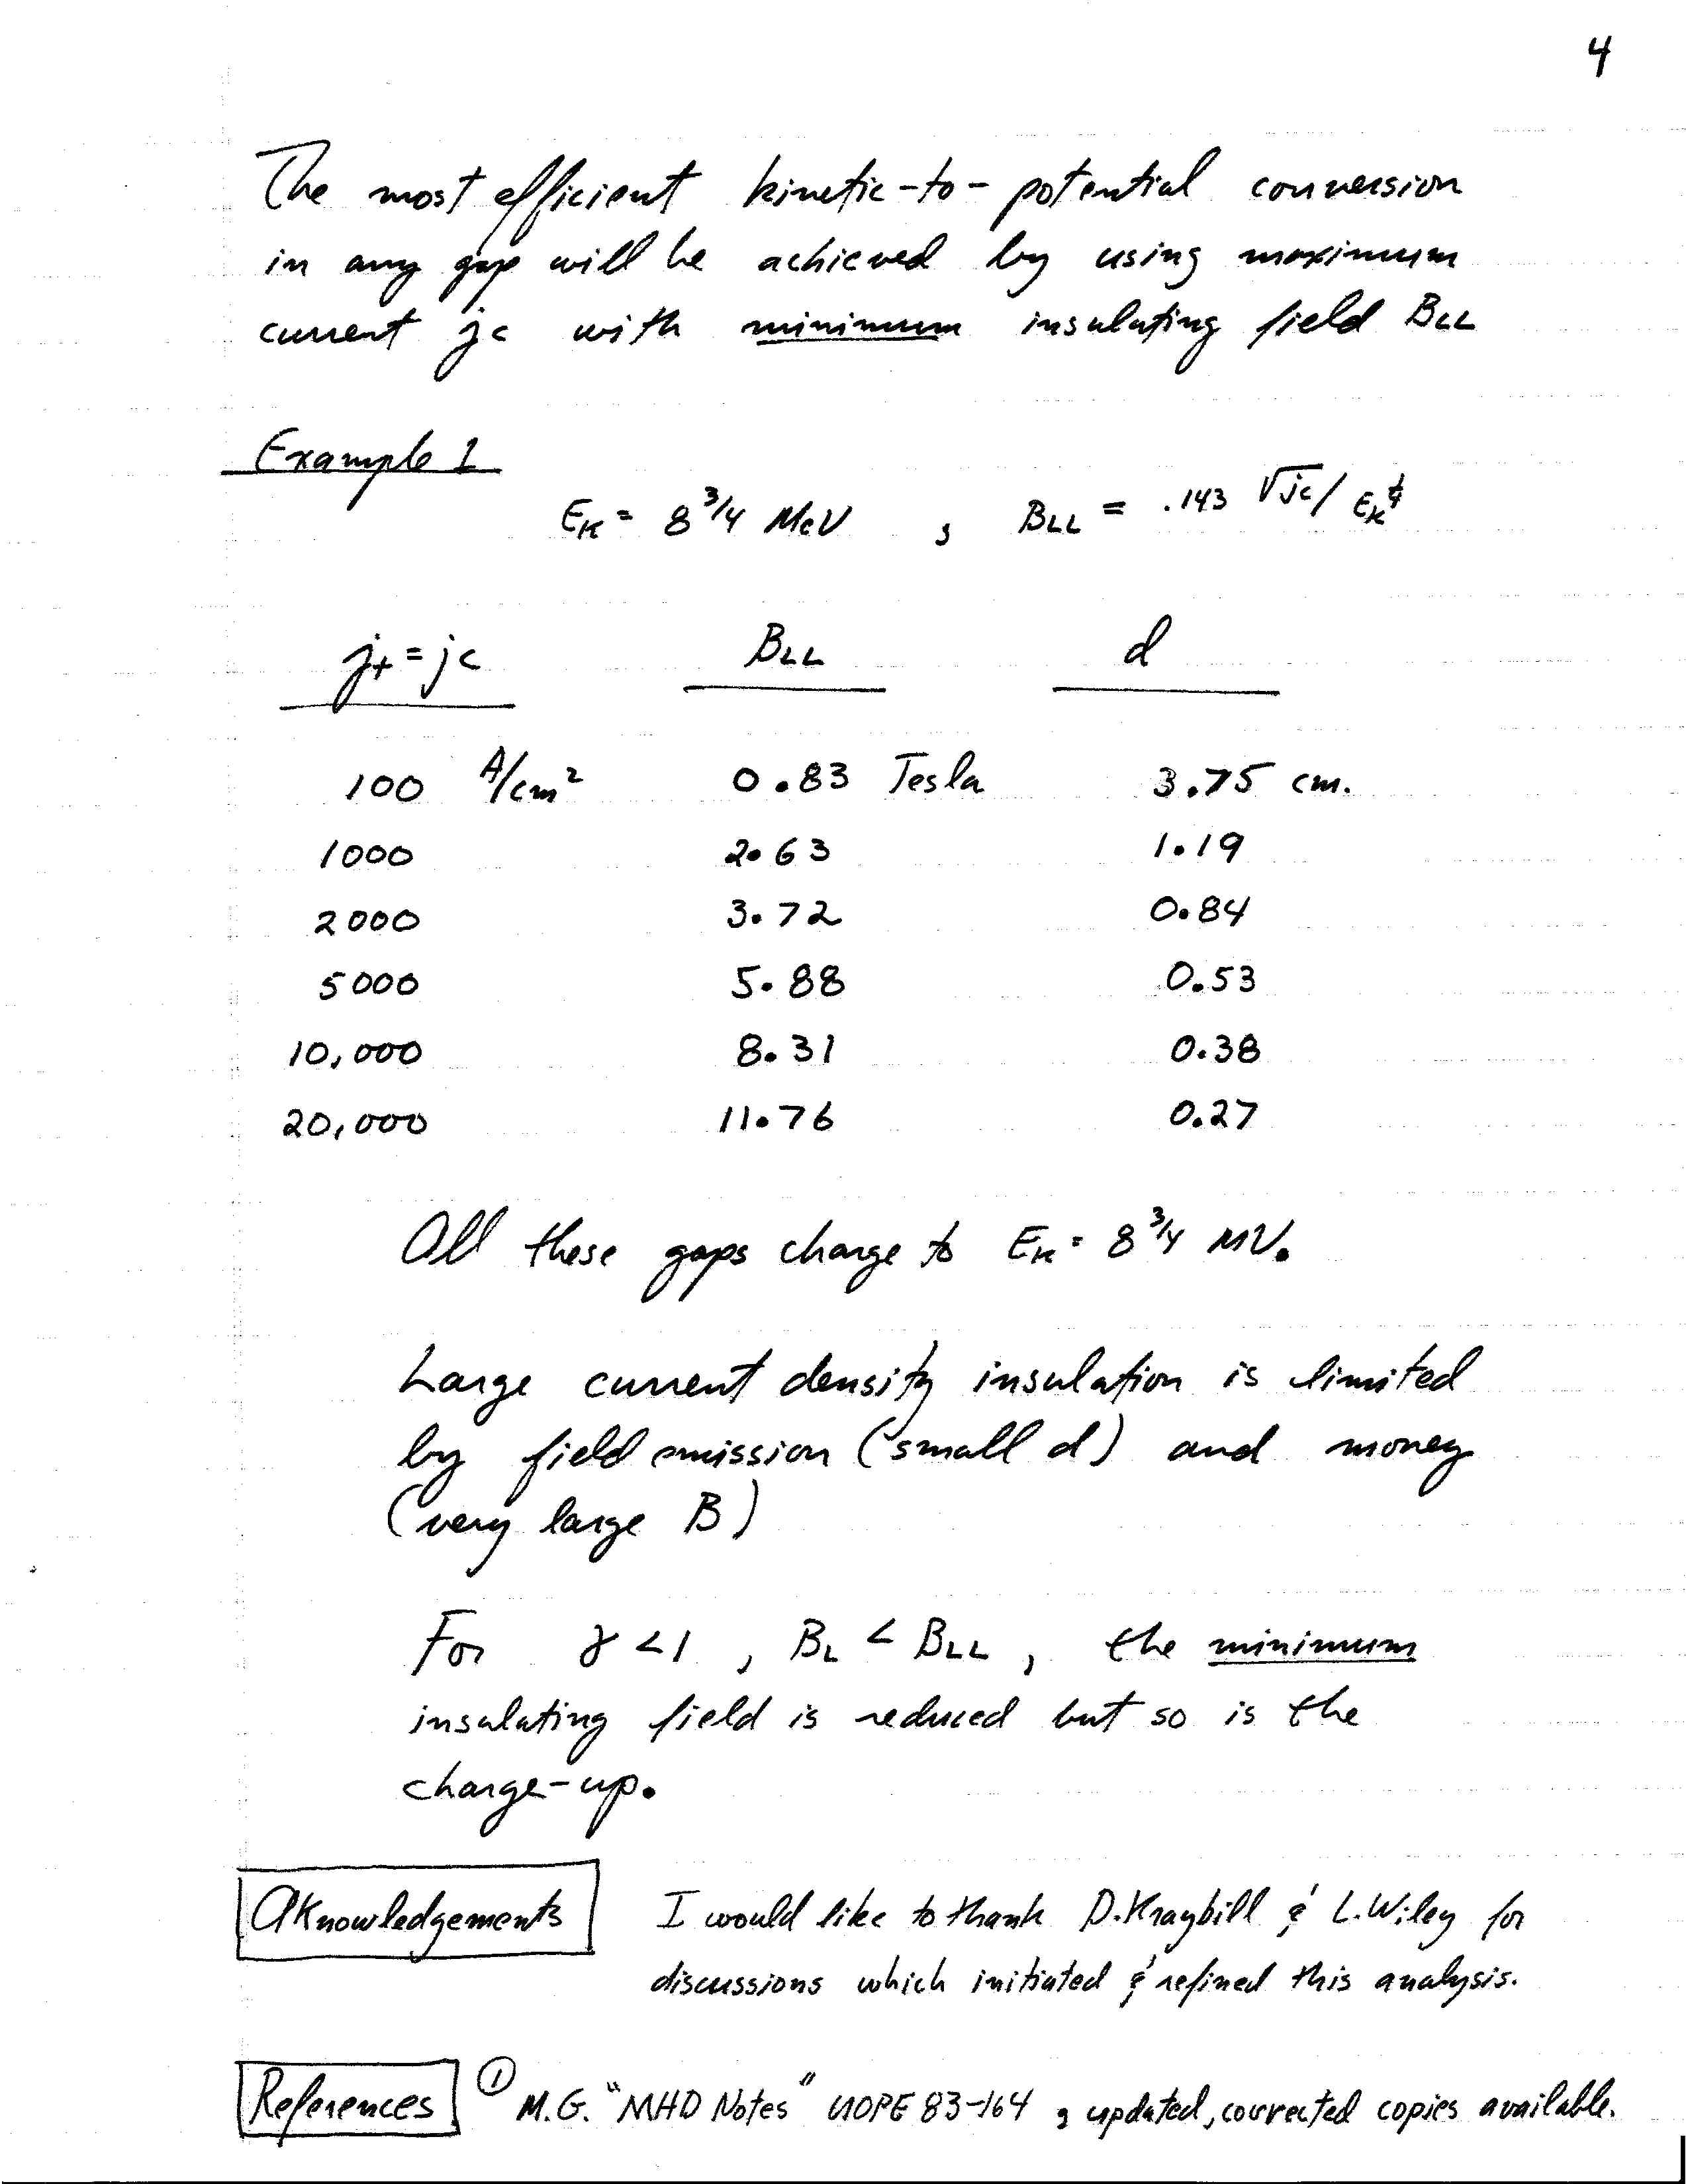 4
The most efficient kinetic-to-potential conversion
in any gap will be achieved by using maximum
current jc with minimum insulating field BLL
Example 1
EK = 8 3/4 MeV , BLL = .143 √jc / EK^1/4
j+ = jc BLL d
100 A/cm² 0.83 Tesla 3.75 cm.
1000 2.63 1.19
2000 3.72 0.84
5000 5.88 0.53
10,000 8.31 0.38
20,000 11.76 0.27
All these gaps charge to EK = 8 3/4 MV.
Large current density insulation is limited
by field emission (small d) and money
(very large B)
For γ < 1 , BL < BLL , the minimum
insulating field is reduced but so is the
charge-up.
AKnowledgements I would like to thank D. Kraybill & L. Wiley for
discussions which initiated & refined this analysis.
References ① M.G. "MHD Notes" UOPE 83-164 , updated, corrected copies available.